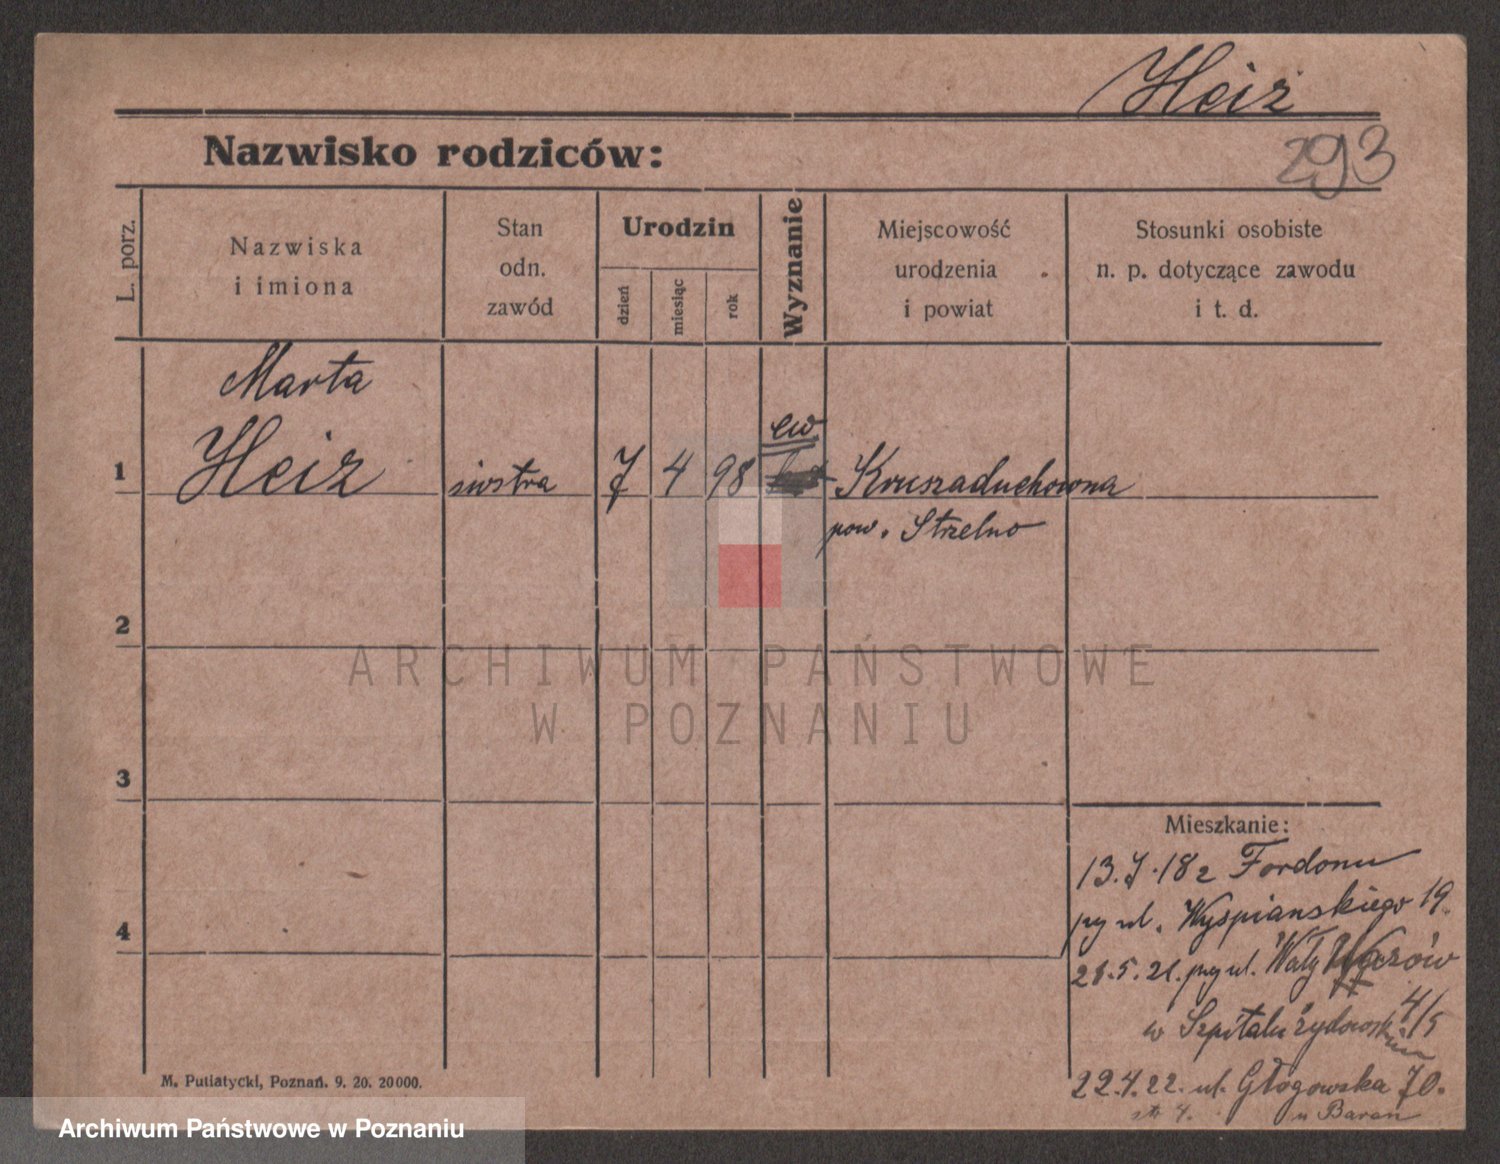 Heiz
Nazwisko rodziców:
293
L. porz.
Nazwiska
i imiona
Stan
odn.
zawód
Urodzin
dzień
miesiąc
rok
Wyznanie
Miejscowość
urodzenia
i powiat
Stosunki osobiste
n. p. dotyczące zawodu
i t. d.
Marta
ew
1 Heiz siostra 7 4 98 Kruszaduchowna
pow. Strzelno
2
ARCHIWUM PAŃSTWOWE
W POZNANIU
3
Mieszkanie:
13.7.18 z Fordonu
4
przy ul. Wyspiańskiego 19.
21.5.21. przy ul. Wały Wazów
4/5
w Szpitalu żydowskim
22.4.22. ul. Głogowska 70.
u Baran
M. Putiatycki, Poznań. 9. 20. 20000.
Archiwum Państwowe w Poznaniu